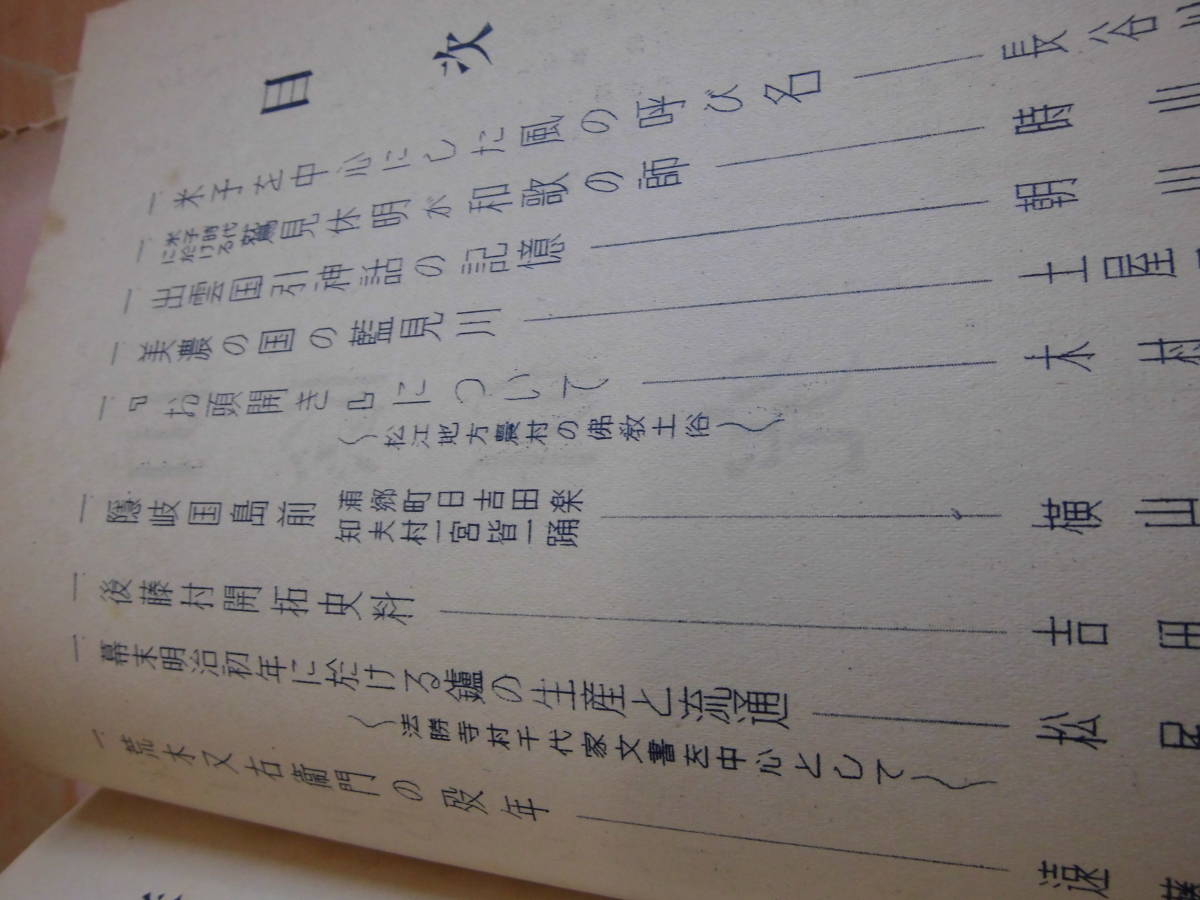 目次
一 米子を中心にした風の呼び名 長谷川
一 米子時代に於ける鷲見休明が和歌の師 時山
一 出雲国引神話の記憶 朝山
一 美濃の国の藍見川 土屋
一 『お頭開き』について 木村
〜松江地方農村の佛教土俗〜
一 隠岐国島前 浦郷町日吉田楽 知夫村一宮皆一踊 横山
一 後藤村開拓史料 吉田
一 幕末明治初年に於ける鑪の生産と流通 松
〜法勝寺村千代家文書を中心として〜
一 荒木又右衛門の歿年 遠藤